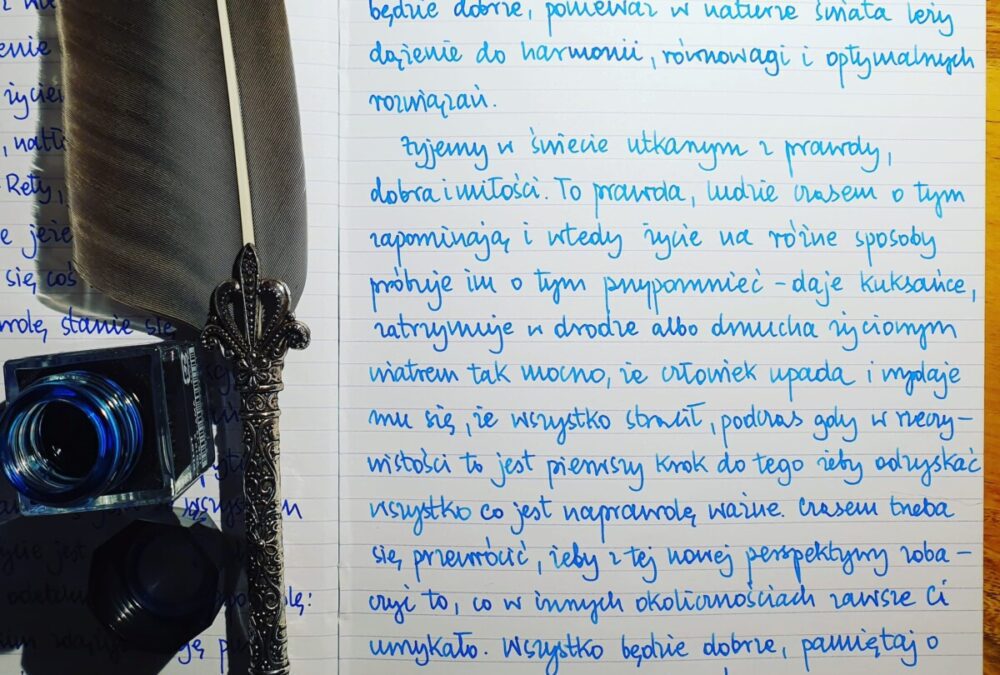 enie
życie
Rety,
e jeże
się coś
stanie się
wszystkim
ycie jest
będzie dobrze, ponieważ w naturze świata leży
dążenie do harmonii, równowagi i optymalnych
rozwiązań.
Żyjemy w świecie utkanym z prawdy,
dobra i miłości. To prawda, ludzie czasem o tym
zapominają i wtedy życie na różne sposoby
próbuje im o tym przypomnieć – daje kuksańce,
zatrzymuje w drodze albo dmucha życiowym
wiatrem tak mocno, że człowiek upada i wydaje
mu się, że wszystko stracił, podczas gdy w rzeczy–
wistości to jest pierwszy krok do tego żeby odzyskać
wszystko co jest naprawdę ważne. Czasem trzeba
się przewrócić, żeby z tej nowej perspektywy zoba–
czyć to, co w innych okolicznościach zawsze Ci
umykało. Wszystko będzie dobrze, pamiętaj o